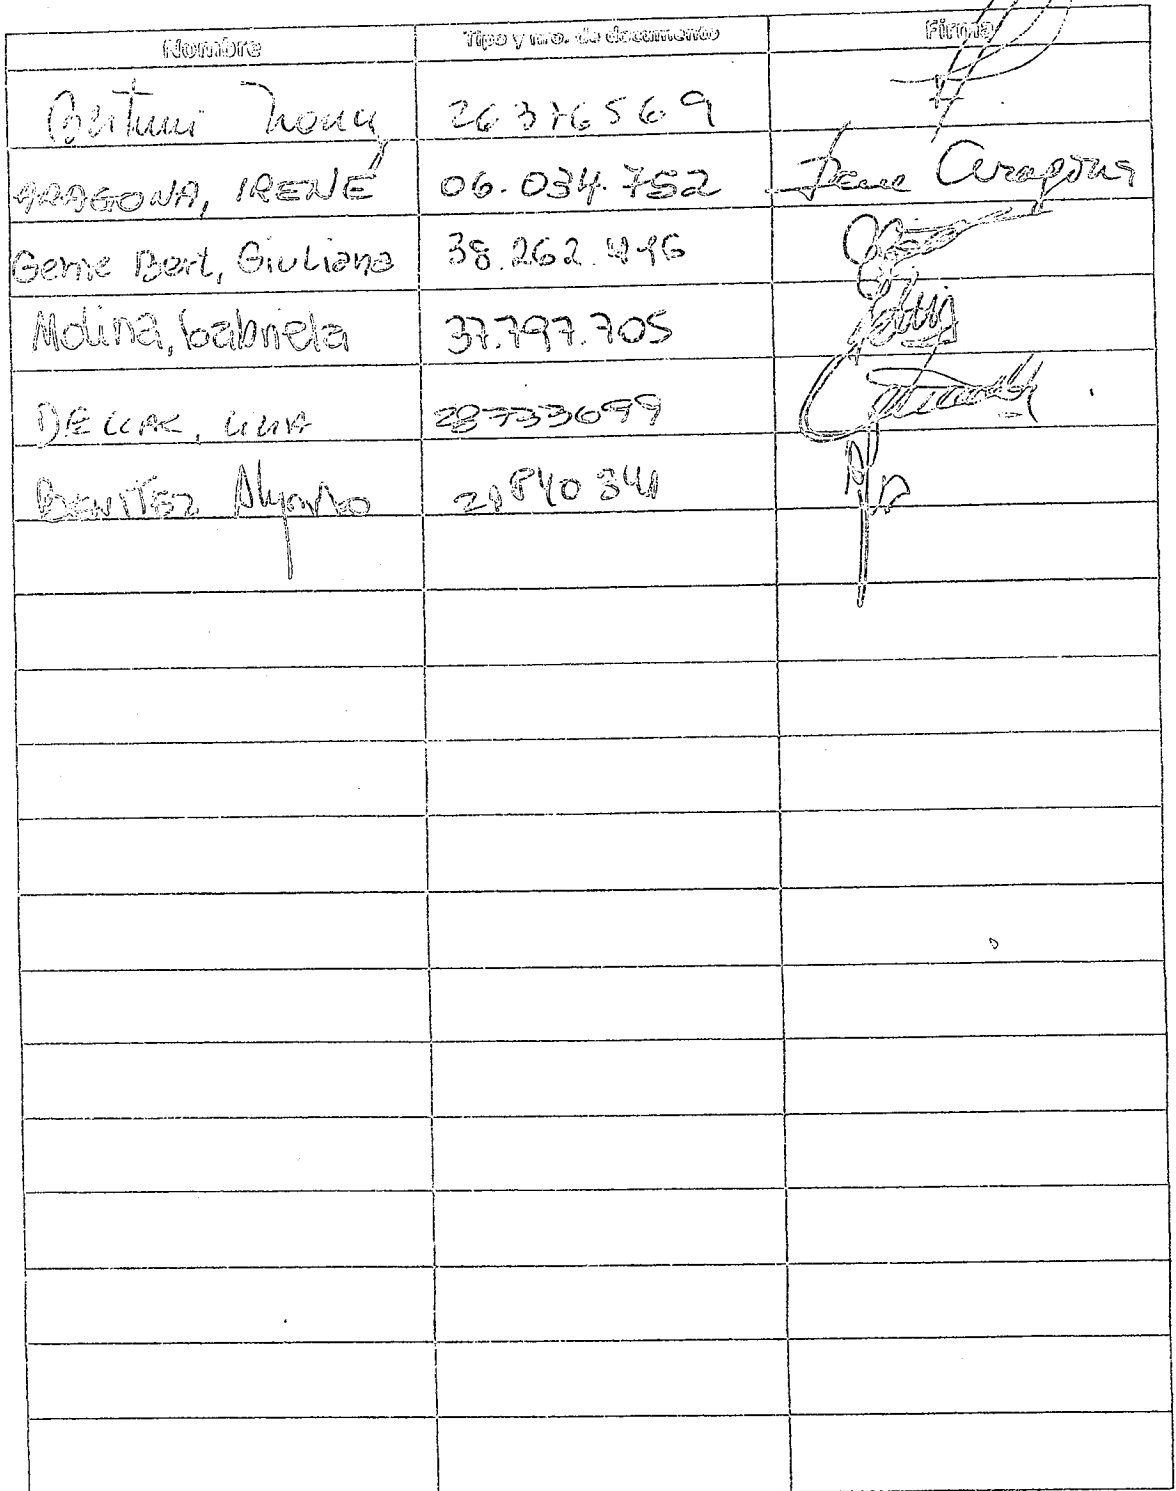 Nombre Tipo y nro. de documento Firma
26376569
ARAGONA, IRENE 06.034.752 Irene Aragona
Geme Bert, Giuliana 38.262.496
Molina, Gabriela 37.797.705
DELLAC, LILIA 28733699
BENITEZ 21840341